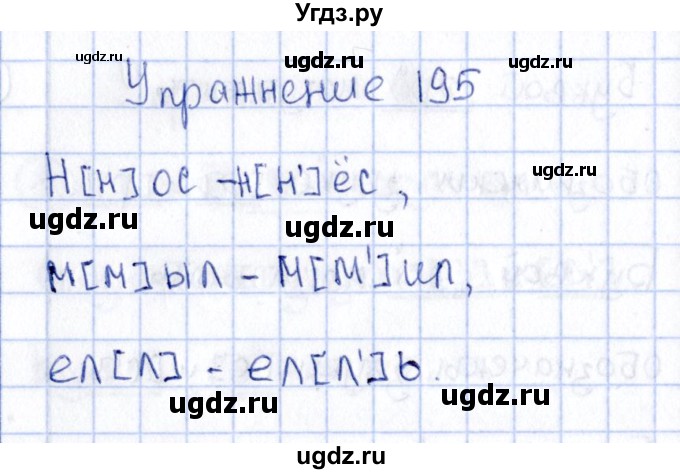 Угдз.ру
ugdz.ru ugdz.ru
Упражнение 195
ugdz.ru
Н[н]ос - н[н']ёс,
ugdz.ru ugdz.ru
м[м]ыл - м[м']ил,
ел[л] - ел[л']ь.
ugdz.ru ugdz.ru
Угдз.ру